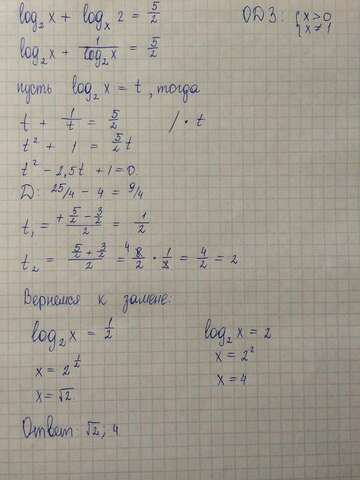 log₂x + logₓ2 = 5/2   ОДЗ: { x>0
x≠1
log₂x + 1/log₂x = 5/2
пусть log₂x = t, тогда
t + 1/t = 5/2   / · t
t² + 1 = 5/2 t
t² - 2,5t + 1 = 0.
D: 25/4 - 4 = 9/4
t₁ = (+5/2 - 3/2)/2 = 1/2
t₂ = (5/2 + 3/2)/2 = ⁴8/2 · 1/2 = 4/2 = 2
Вернемся к замене:
log₂x = 1/2   log₂x = 2
x = 2^(1/2)   x = 2²
x = √2   x = 4
Ответ: √2; 4